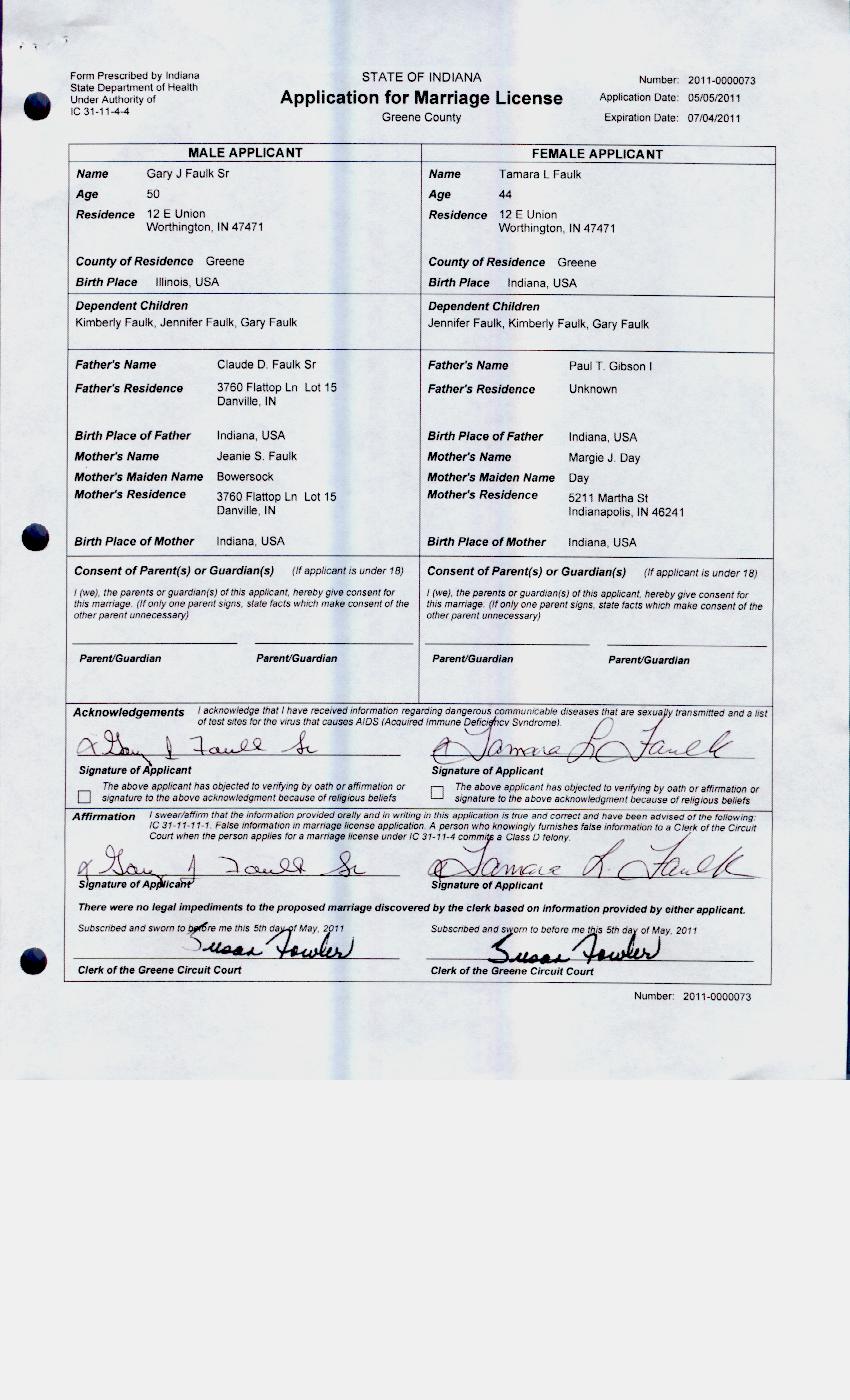 Form Prescribed by Indiana
State Department of Health
Under Authority of
IC 31-11-4-4
STATE OF INDIANA
Application for Marriage License
Greene County
Number: 2011-0000073
Application Date: 05/05/2011
Expiration Date: 07/04/2011
MALE APPLICANT
Name Gary J Faulk Sr
Age 50
Residence 12 E Union
Worthington, IN 47471
County of Residence Greene
Birth Place Illinois, USA
Dependent Children
Kimberly Faulk, Jennifer Faulk, Gary Faulk
Father's Name Claude D. Faulk Sr
Father's Residence 3760 Flattop Ln Lot 15
Danville, IN
Birth Place of Father Indiana, USA
Mother's Name Jeanie S. Faulk
Mother's Maiden Name Bowersock
Mother's Residence 3760 Flattop Ln Lot 15
Danville, IN
Birth Place of Mother Indiana, USA
Consent of Parent(s) or Guardian(s) (If applicant is under 18)
I (we), the parents or guardian(s) of this applicant, hereby give consent for
this marriage. (If only one parent signs, state facts which make consent of the
other parent unnecessary)
Parent/Guardian Parent/Guardian
FEMALE APPLICANT
Name Tamara L Faulk
Age 44
Residence 12 E Union
Worthington, IN 47471
County of Residence Greene
Birth Place Indiana, USA
Dependent Children
Jennifer Faulk, Kimberly Faulk, Gary Faulk
Father's Name Paul T. Gibson I
Father's Residence Unknown
Birth Place of Father Indiana, USA
Mother's Name Margie J. Day
Mother's Maiden Name Day
Mother's Residence 5211 Martha St
Indianapolis, IN 46241
Birth Place of Mother Indiana, USA
Consent of Parent(s) or Guardian(s) (If applicant is under 18)
I (we), the parents or guardian(s) of this applicant, hereby give consent for
this marriage. (If only one parent signs, state facts which make consent of the
other parent unnecessary)
Parent/Guardian Parent/Guardian
Acknowledgements I acknowledge that I have received information regarding dangerous communicable diseases that are sexually transmitted and a list
of test sites for the virus that causes AIDS (Acquired Immune Deficiency Syndrome).
Gary J Faulk Sr
Signature of Applicant
The above applicant has objected to verifying by oath or affirmation or
signature to the above acknowledgment because of religious beliefs
Tamara L. Faulk
Signature of Applicant
The above applicant has objected to verifying by oath or affirmation or
signature to the above acknowledgment because of religious beliefs
Affirmation I swear/affirm that the information provided orally and in writing in this application is true and correct and have been advised of the following:
IC 31-11-11-1. False information in marriage license application. A person who knowingly furnishes false information to a Clerk of the Circuit
Court when the person applies for a marriage license under IC 31-11-4 commits a Class D felony.
Gary J Faulk Sr
Signature of Applicant
Tamara L. Faulk
Signature of Applicant
There were no legal impediments to the proposed marriage discovered by the clerk based on information provided by either applicant.
Subscribed and sworn to before me this 5th day of May, 2011
Susan Fowler
Clerk of the Greene Circuit Court
Subscribed and sworn to before me this 5th day of May, 2011
Susan Fowler
Clerk of the Greene Circuit Court
Number: 2011-0000073